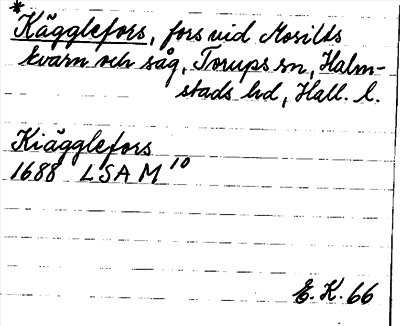 *Kägglefors, fors vid Mosilts
kvarn och såg, Torups sn, Halm-
stads hd, Hall. l.
Kiägglefors
1688 LSA M¹⁰
E. K. 66